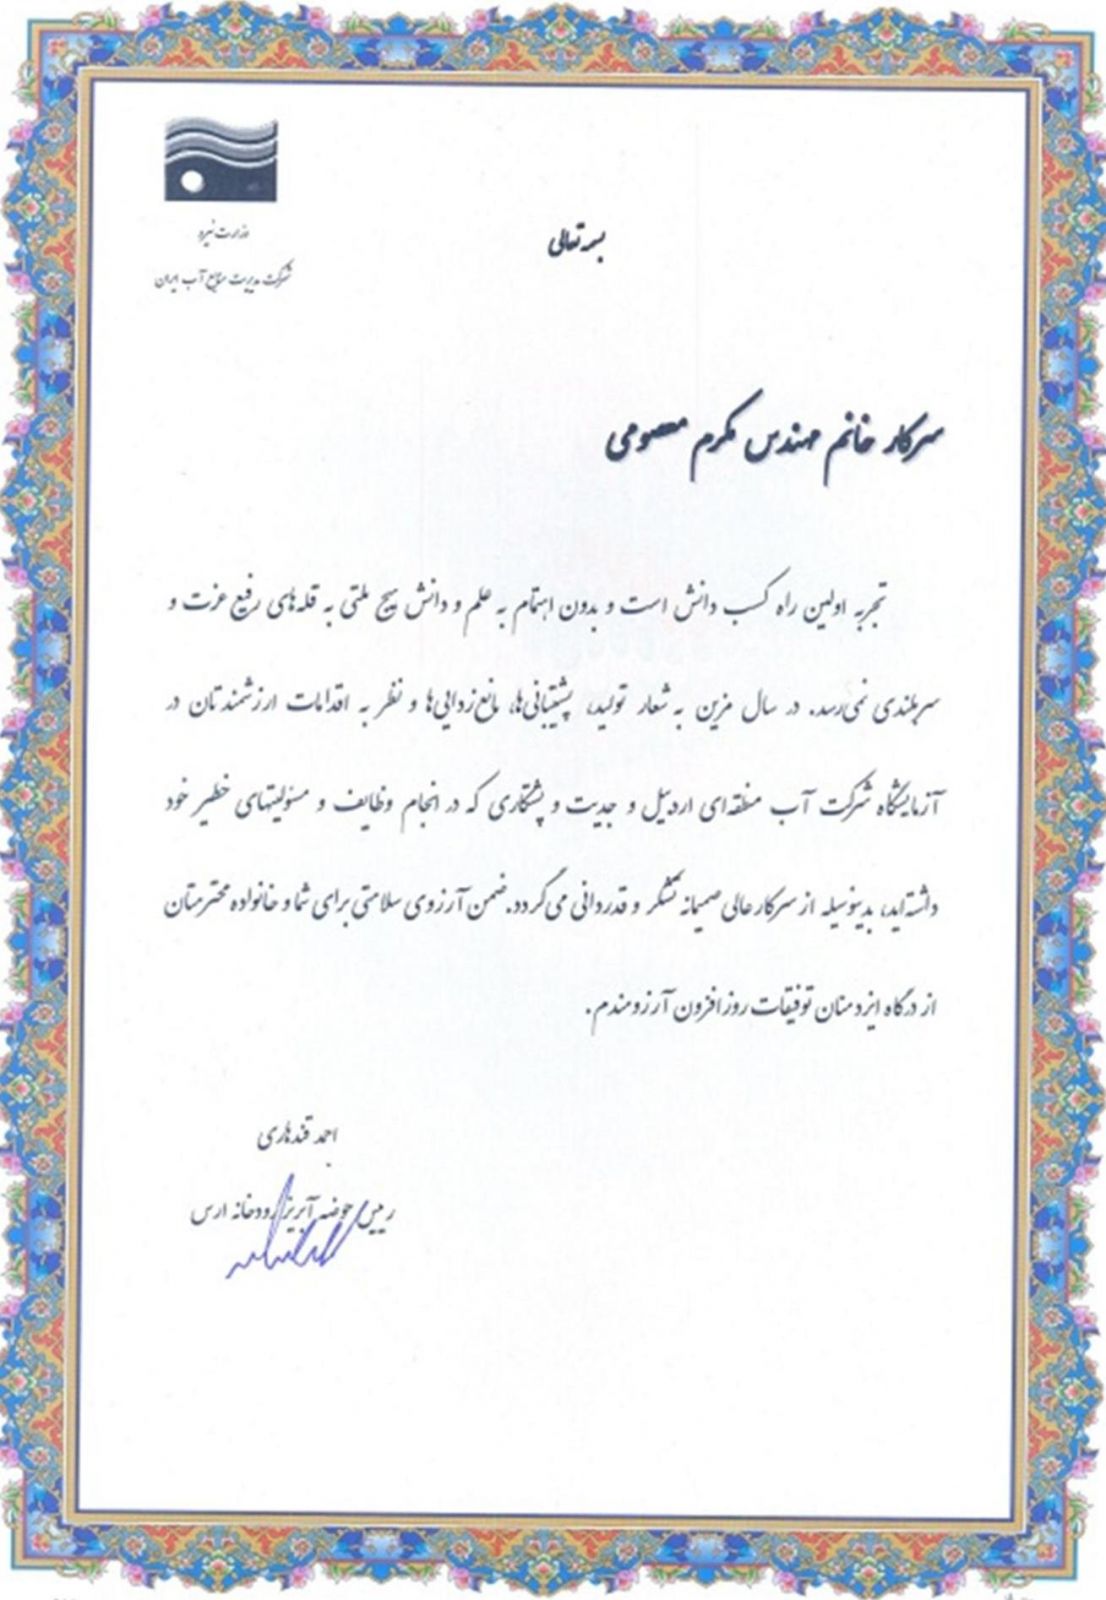 وزارت نیرو
شرکت مدیریت منابع آب ایران
بسمه تعالی
سرکار خانم مهندس مکرم معصومی
تجربه اولین راه کسب دانش است و بدون اهتمام به علم و دانش هیچ ملتی به قله‌های رفیع عزت و
سربلندی نمی‌رسد. در سال مزین به شعار تولید، پشتیبانی‌ها، مانع‌زدایی‌ها و نظر به اقدامات ارزشمندتان در
آزمایشگاه شرکت آب منطقه‌ای اردبیل و جدیت و پشتکاری که در انجام وظایف و مسئولیتهای خطیر خود
داشته‌اید، بدینوسیله از سرکارعالی صمیمانه تشکر و قدردانی می‌گردد. ضمن آرزوی سلامتی برای شما و خانواده محترمتان
از درگاه ایزد منان توفیقات روزافزون آرزومندم.
احمد قندهاری
رییس حوضه آبریز رودخانه ارس